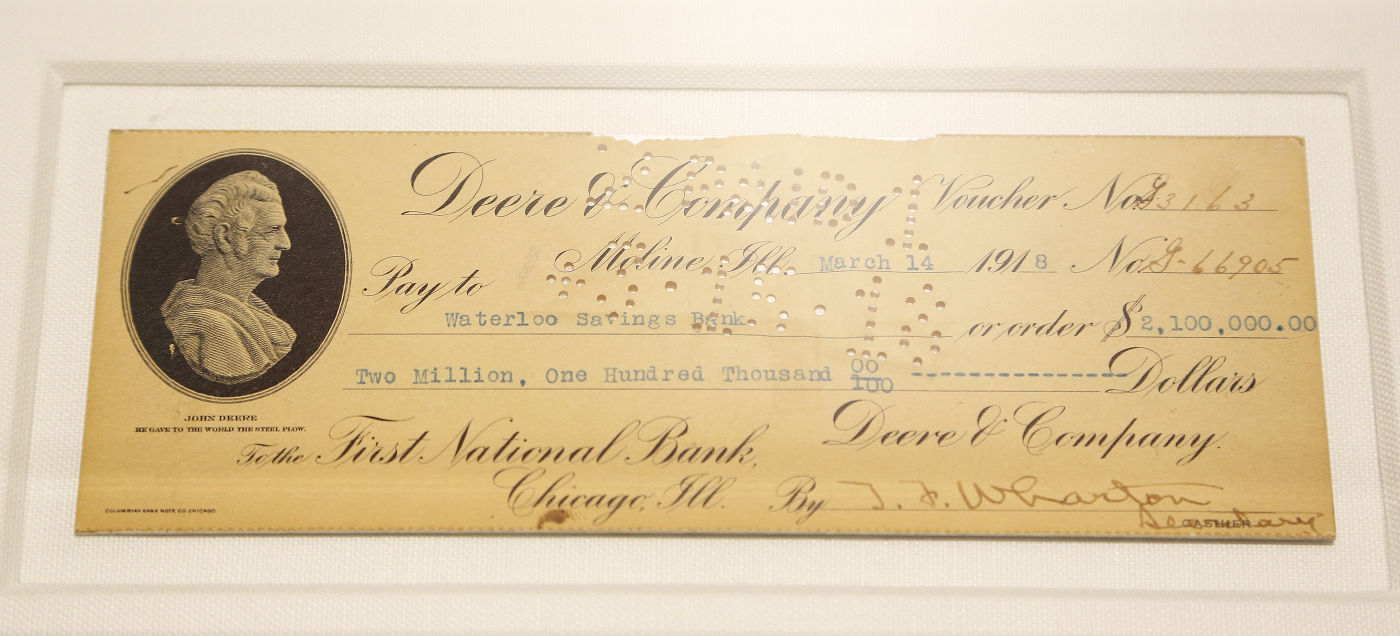 Deere & Company Voucher No. G3163
Moline, Ill. March 14 1918 No. G-66905
Pay to
Waterloo Savings Bank or order $2,100,000.00
Two Million, One Hundred Thousand 00/100 --------------- Dollars
JOHN DEERE
HE GAVE TO THE WORLD THE STEEL PLOW.
To the First National Bank,
Chicago, Ill.
Deere & Company.
By T. F. Wharton
Secretary
CASHIER
COLUMBIAN BANK NOTE CO. CHICAGO